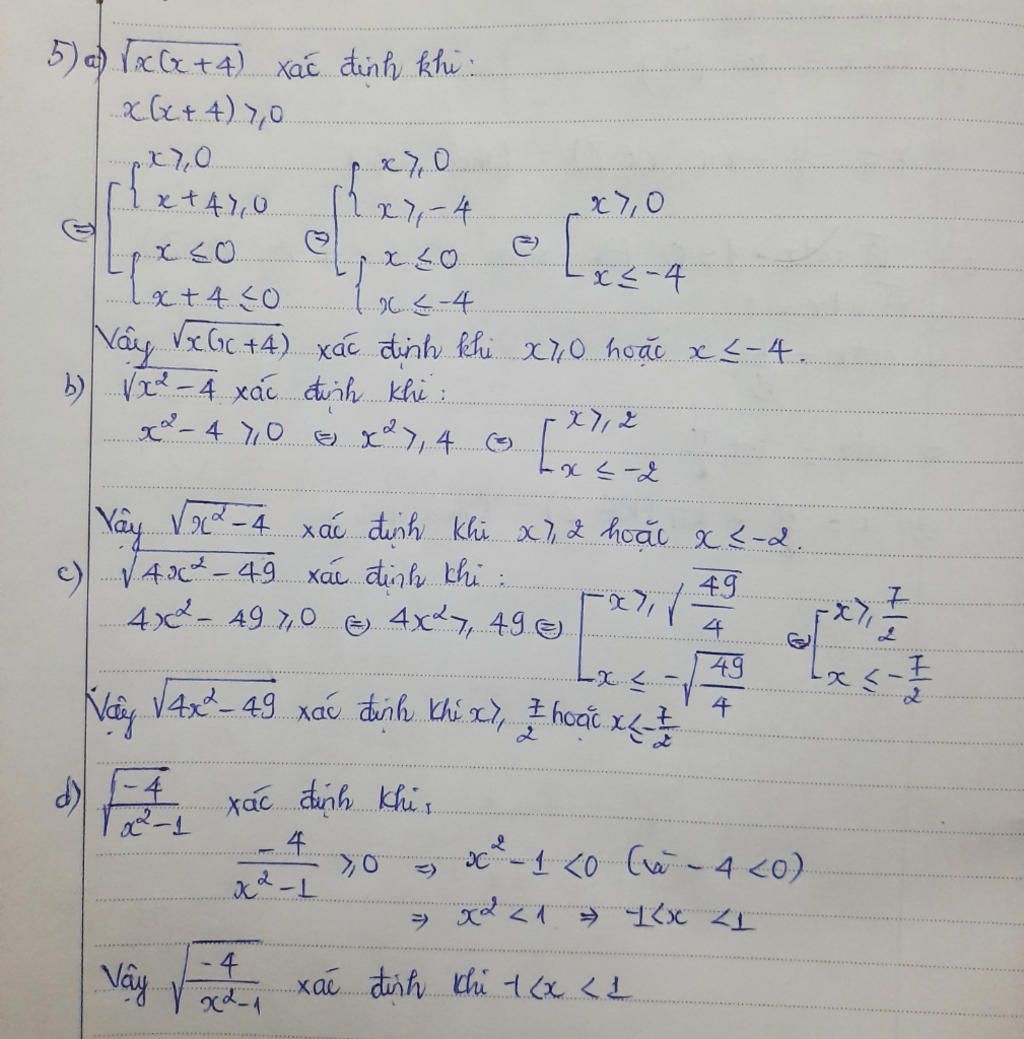 5) a) √x(x+4) xác định khi:
x(x+4) ≥ 0
⇔ [ { x ≥ 0 ; x+4 ≥ 0 ; { x ≤ 0 ; x+4 ≤ 0 ⇔ [ { x ≥ 0 ; x ≥ -4 ; { x ≤ 0 ; x ≤ -4 ⇔ [ x ≥ 0 ; x ≤ -4
Vậy √x(x+4) xác định khi x ≥ 0 hoặc x ≤ -4.
b) √x² - 4 xác định khi:
x² - 4 ≥ 0 ⇔ x² ≥ 4 ⇔ [ x ≥ 2 ; x ≤ -2
Vậy √x² - 4 xác định khi x ≥ 2 hoặc x ≤ -2.
c) √4x² - 49 xác định khi:
4x² - 49 ≥ 0 ⇔ 4x² ≥ 49 ⇔ [ x ≥ √49/4 ; x ≤ -√49/4 ⇔ [ x ≥ 7/2 ; x ≤ -7/2
Vậy √4x² - 49 xác định khi x ≥ 7/2 hoặc x ≤ -7/2
d) √-4/x²-1 xác định khi:
-4/x²-1 ≥ 0 ⇒ x² - 1 < 0 (vì -4 < 0)
⇒ x² < 1 ⇒ -1 < x < 1
Vậy √-4/x²-1 xác định khi -1 < x < 1